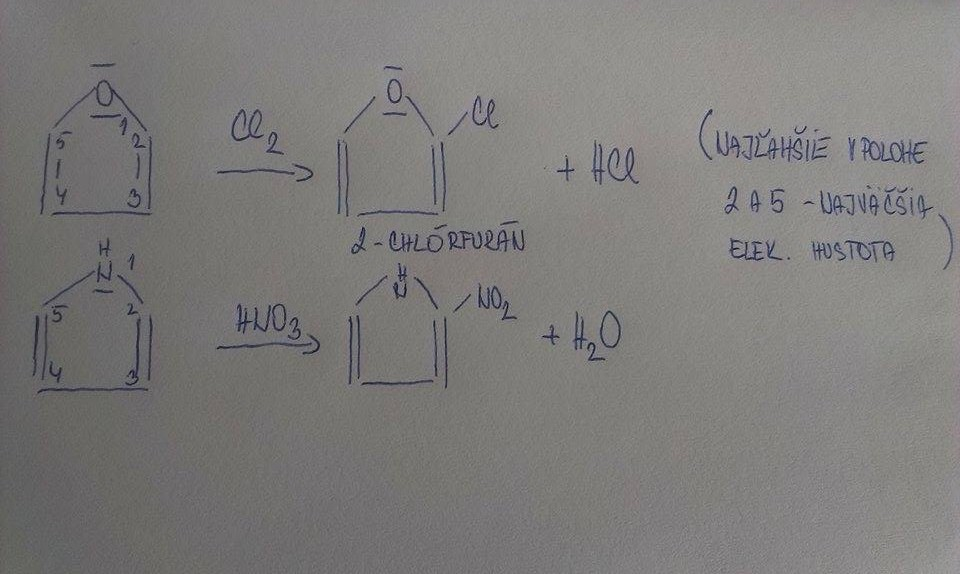 O
1
5 2
4 3
Cl2
O
Cl
+ HCl
2-CHLÓRFURÁN
(NAJĽAHŠIE V POLOHE
2 A 5 - NAJVÄČŠIA
ELEK. HUSTOTA )
H
N 1
5 2
4 3
HNO3
H
N
NO2
+ H2O